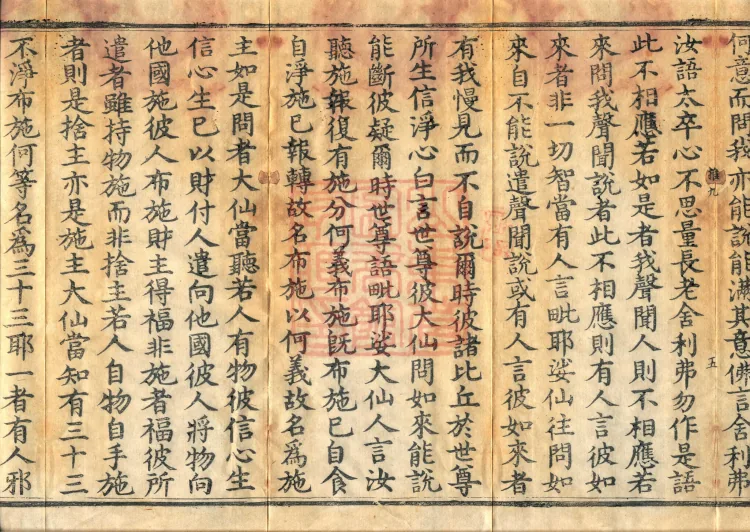 何意而問我亦能說能滿其意佛言舍利弗
汝語太卒心不思量長老舍利弗勿作是語
此不相應若如是者我聲聞人則不相應若
來問我聲聞說者此不相應則有人言彼如
來者非一切智當有人言毗耶娑仙往問如
來自不能說遣聲聞說或有人言彼如來者
有我慢見而不自說爾時彼諸比丘於世尊
所生信淨心白言世尊彼大仙問如來能說
能斷彼疑爾時世尊語毗耶娑大仙人言汝
聽施報復有施分何義布施旣布施已自食
自淨施已報轉故名布施以何義故名爲施
主如是問者大仙當聽若人有物彼信心生
信心生已以財付人遣向他國彼人將物向
他國施彼人布施財主得福非施者福彼所
遣者雖持物施而非捨主若人自物自手施
者則是捨主亦是施主大仙當知有三十三
不淨布施何等名爲三十三耶一者有人邪
五